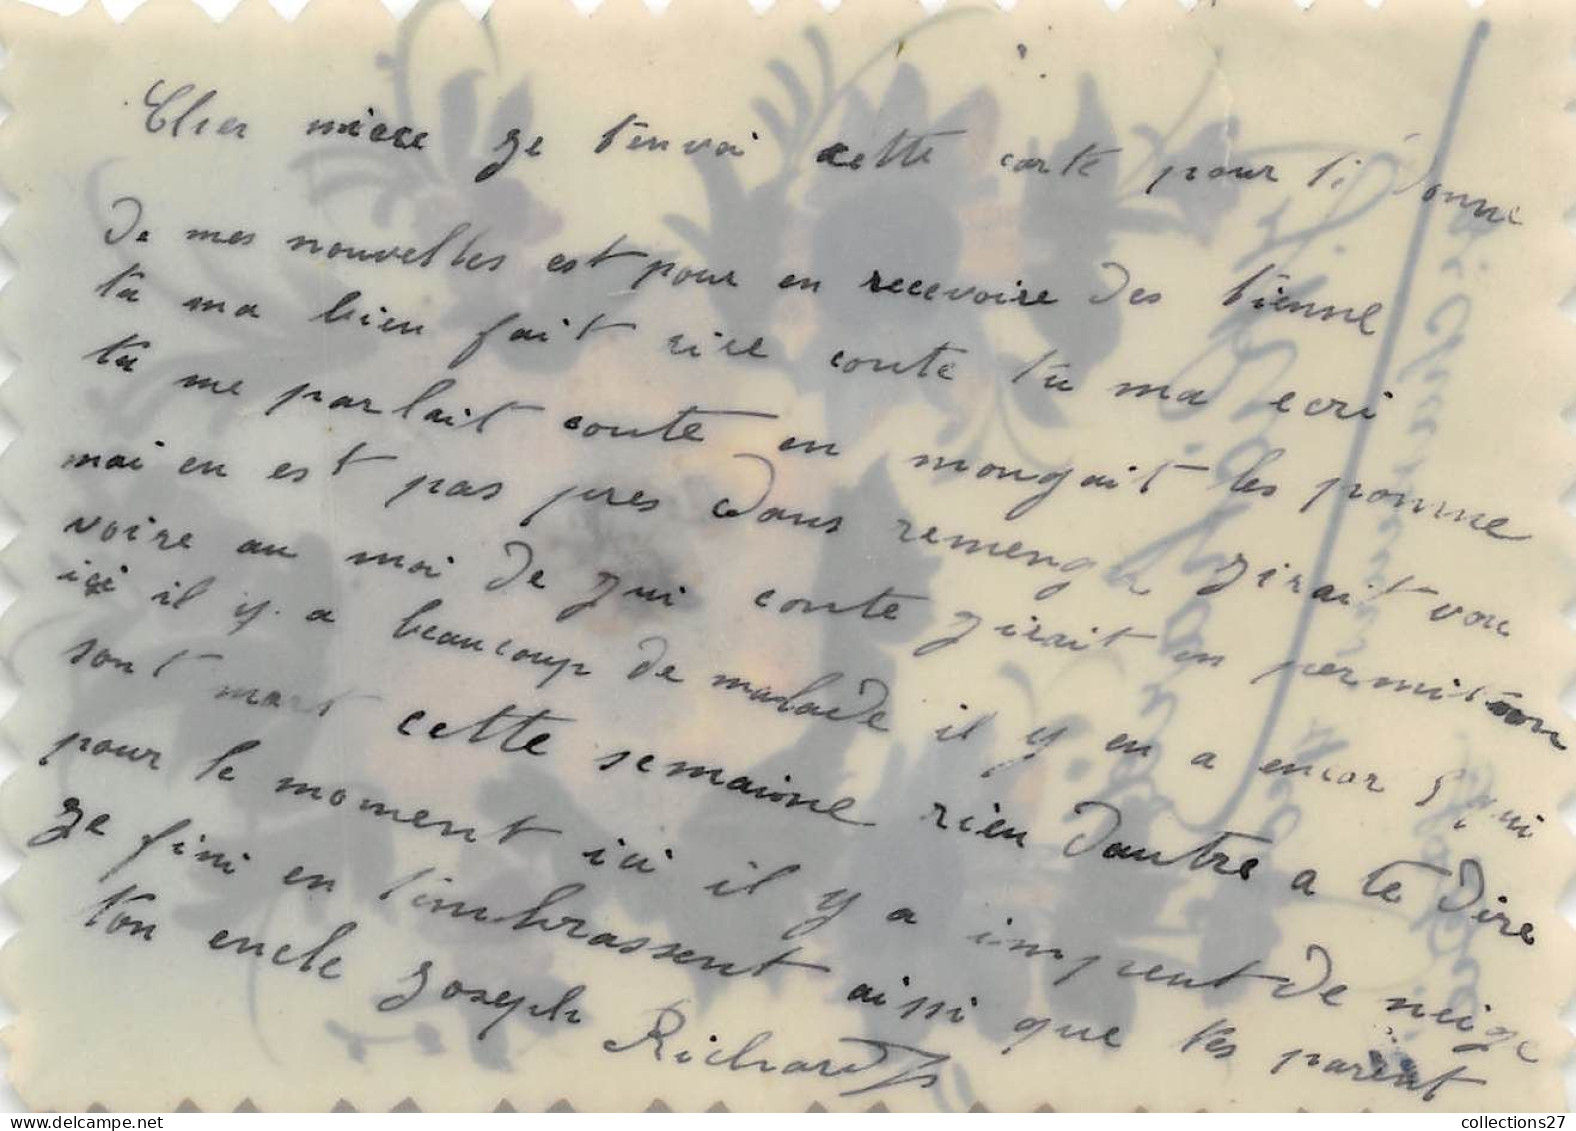 Cher niece Je t'envoi cette carte pour ti donne
De mes nouvelles est pour en recevoire des tienne
tu ma bien fait rire conte tu ma ecri
tu me parlait conte en mongait les pomme
mai en est pas pres dans remenga girait vou
voire au moi de jui conte girait en permition
ici il y a beaucoup de malade il y en a encor 5 qui
sont mort cette semaione rien dautre a te dire
pour le moment ici il y a impeut de neige
Je fini en t'imbrassent aissi que tes parent
ton encle Joseph Richard
collections27